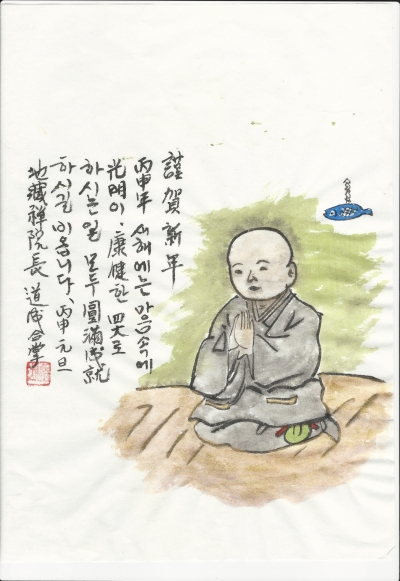 謹賀新年
丙申年 새해에는 마음속에
光明이, 康健한 四大로
하시는일 모두 圓滿成就
하시길 비옵니다, 丙申 元旦
地藏禪院長 道成 合掌